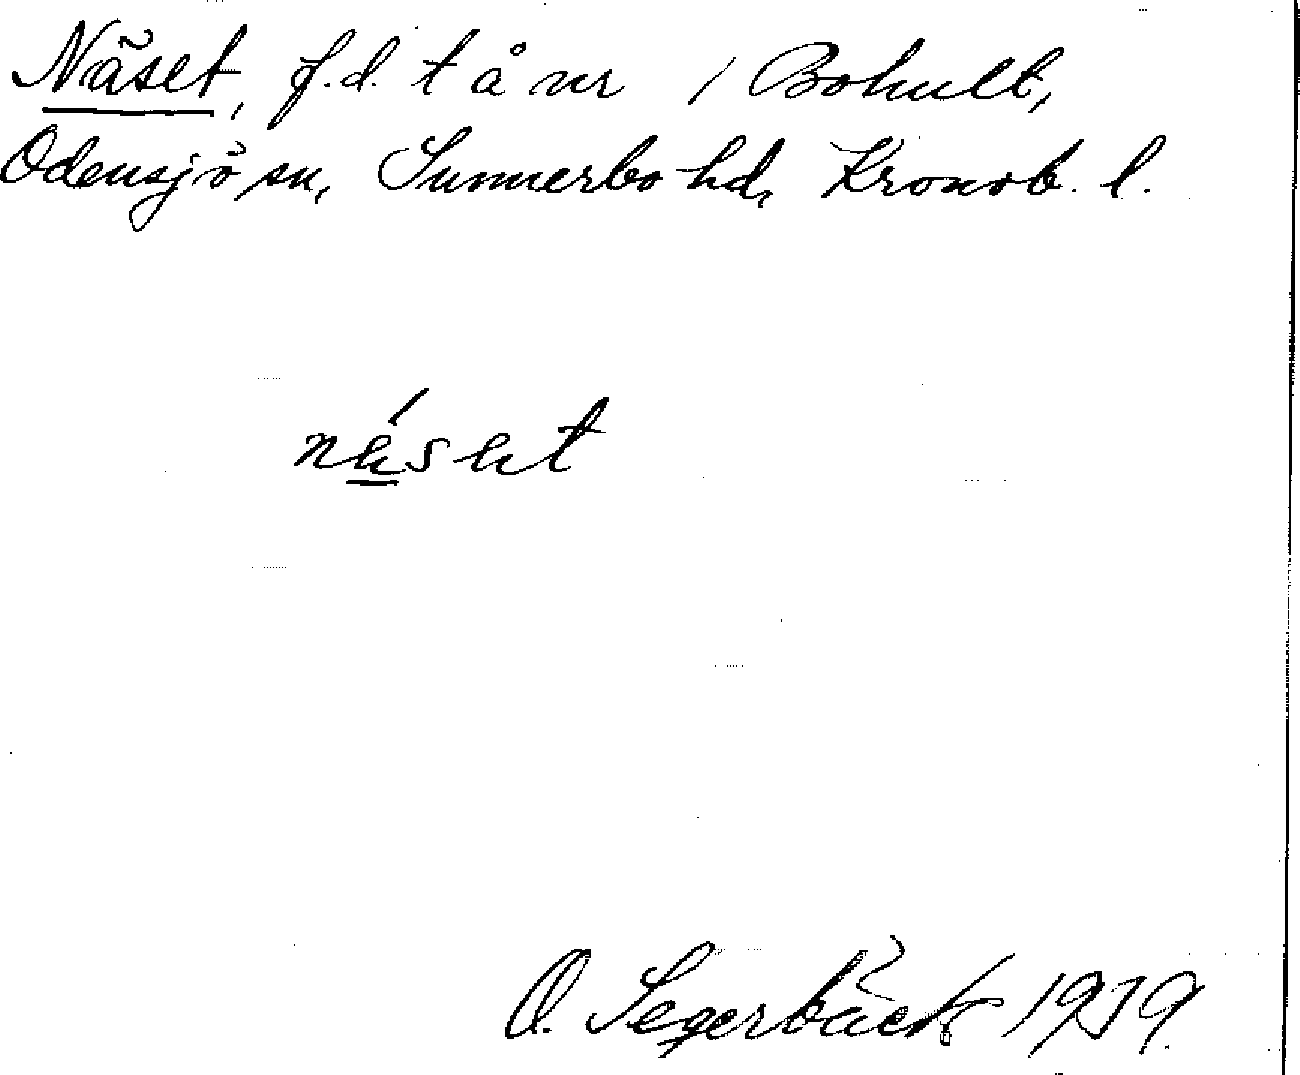 Näset, f.d. t å nr 1 Bohult,
Odensjö sn, Sunnerbo hd, Kronob. l.
näsät
O. Segerbäck 1939.